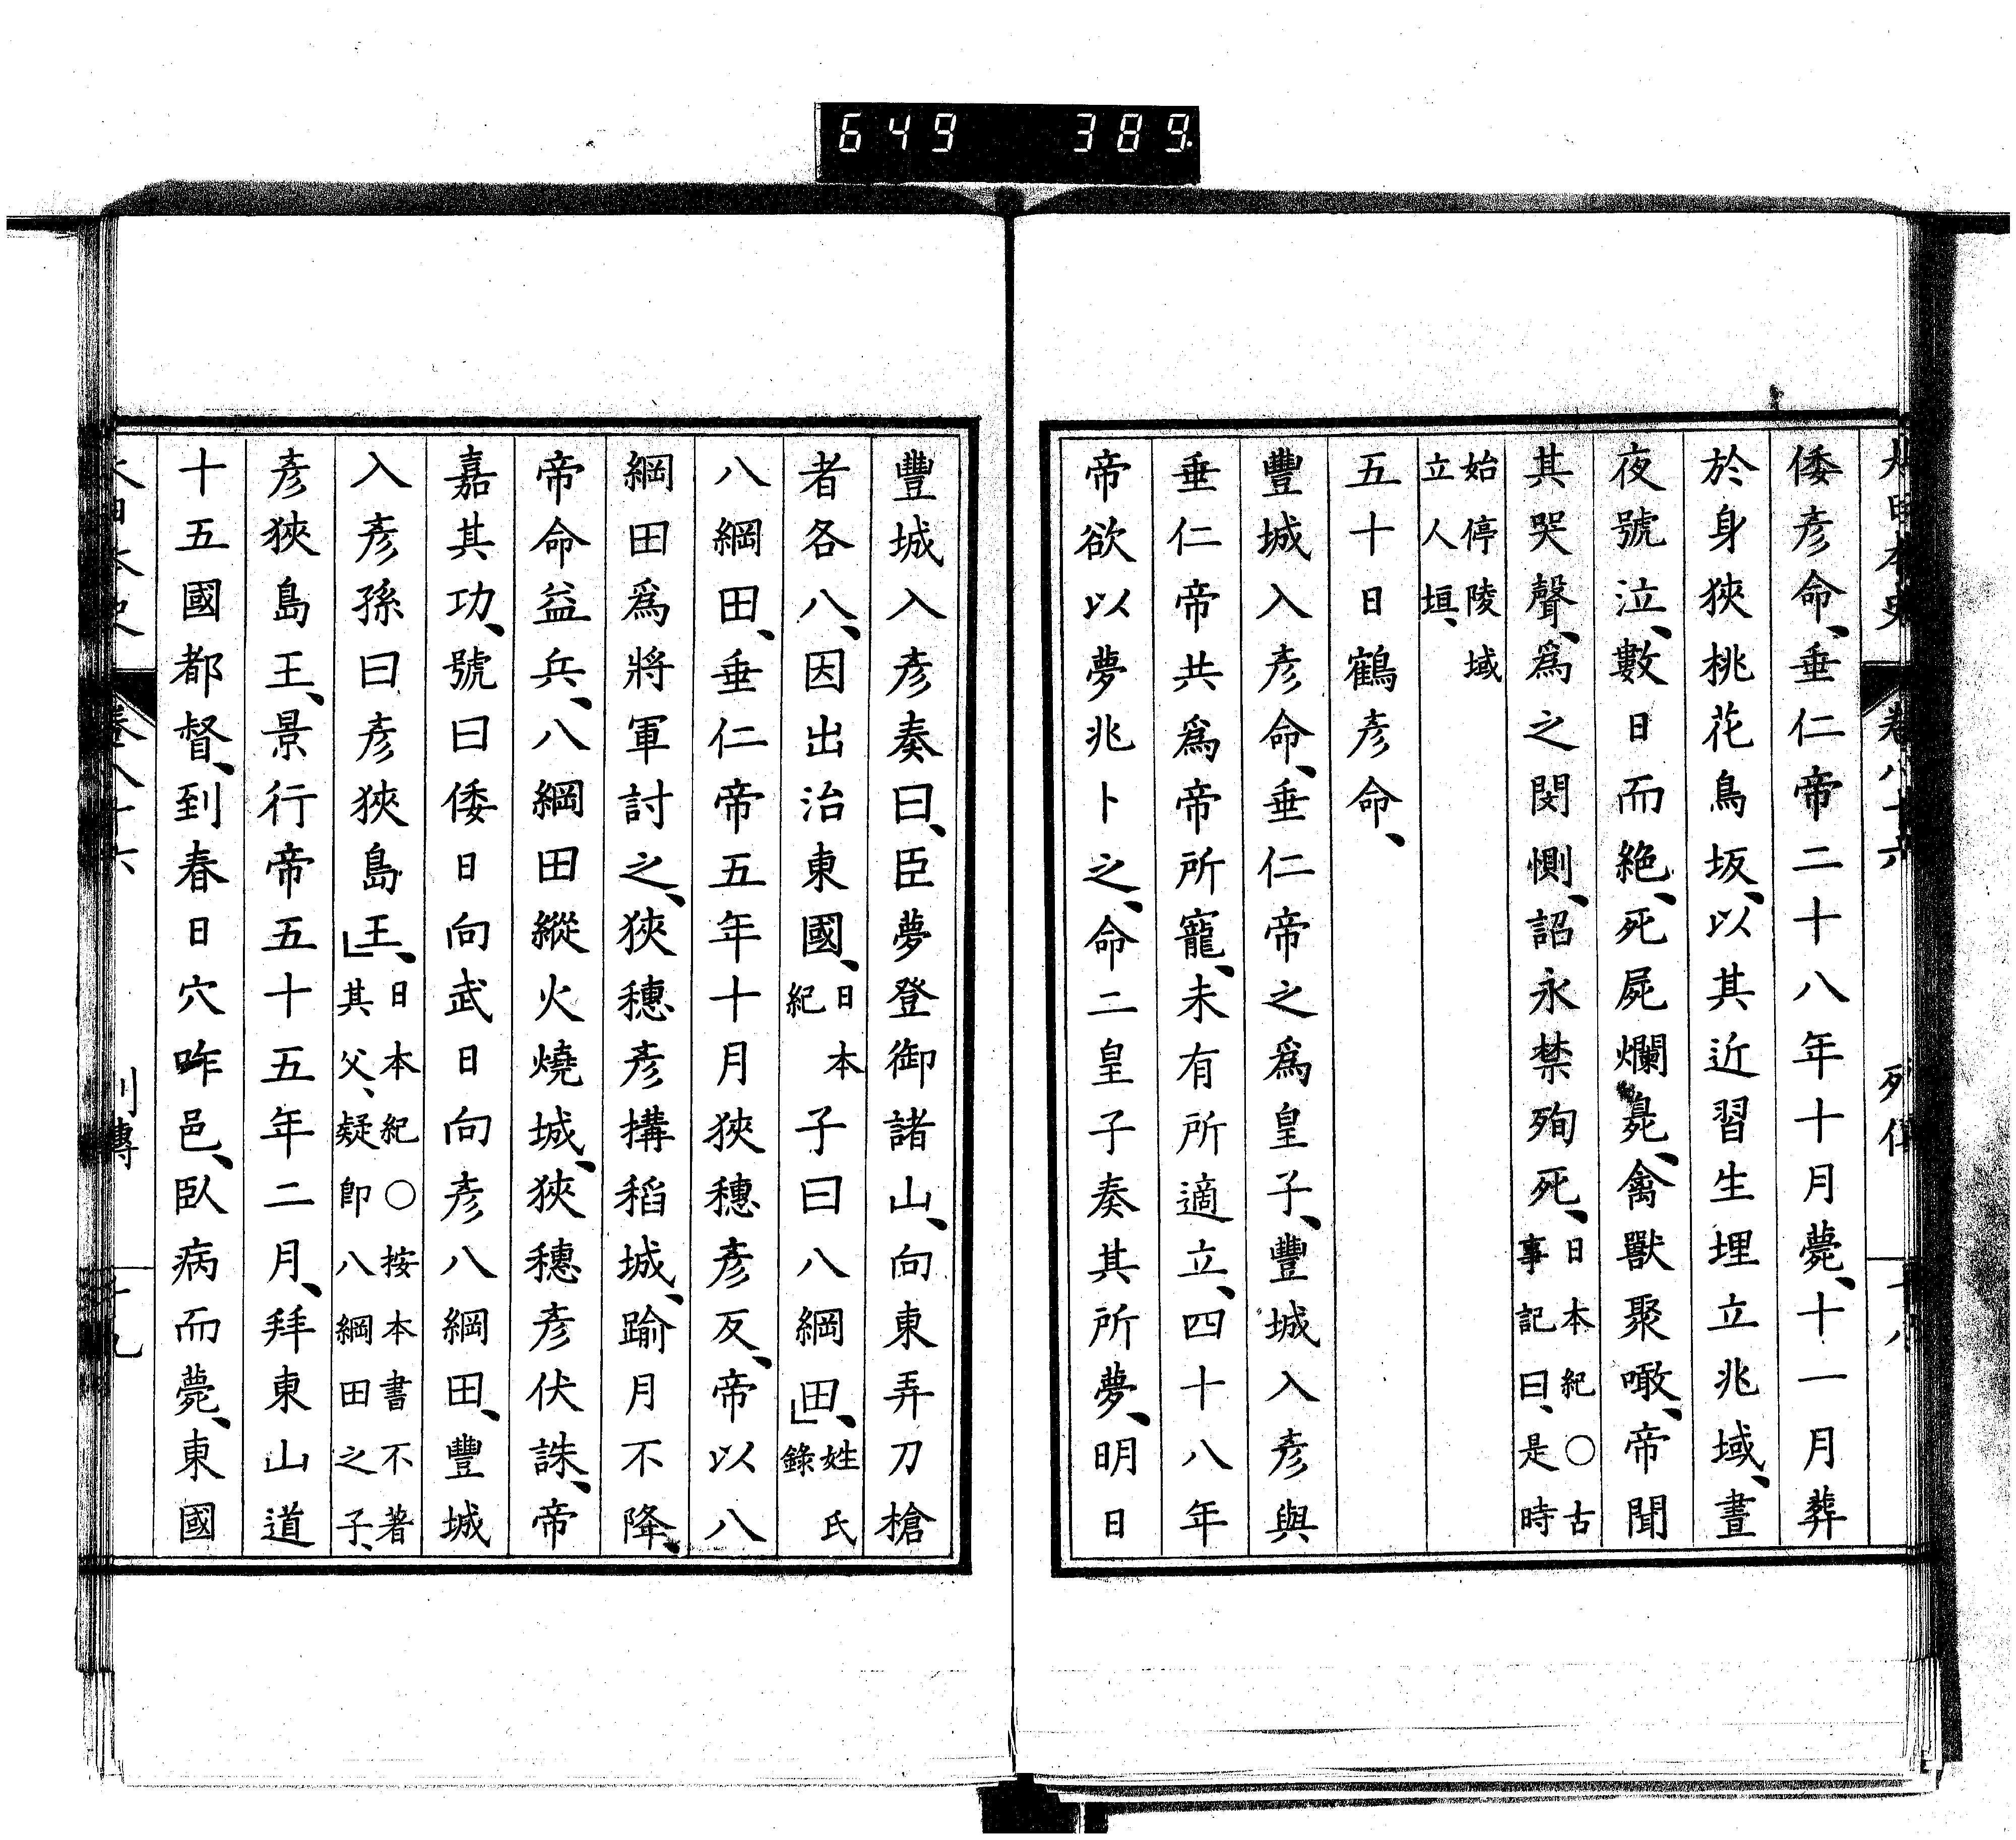 649 389.
大日本史 卷八十六 列傳 十八
倭彥命、垂仁帝二十八年十月薨、十一月葬
於身狹桃花鳥坂、以其近習生埋立兆域、晝
夜號泣、數日而絕、死屍爛臰、禽獸聚噉、帝聞
其哭聲、爲之閔惻、詔永禁殉死、日本紀○古事記曰、是時
始停陵域立人垣、
五十日鶴彥命、
豐城入彥命、垂仁帝之爲皇子、豐城入彥與
垂仁帝共爲帝所寵、未有所適立、四十八年
帝欲以夢兆卜之、命二皇子奏其所夢、明日
豐城入彥奏曰、臣夢登御諸山、向東弄刀槍
者各八、因出治東國、日本紀子曰八綱田、」姓氏錄
八綱田、垂仁帝五年十月狹穗彥反、帝以八
綱田爲將軍討之、狹穗彥搆稻城、踰月不降、
帝命益兵、八綱田縱火燒城、狹穗彥伏誅、帝
嘉其功、號曰倭日向武日向彥八綱田、豐城
入彥孫曰彥狹島王、」日本紀○按本書不著其父、疑卽八綱田之子、
彥狹島王、景行帝五十五年二月、拜東山道
十五國都督、到春日穴咋邑、臥病而薨、東國
大日本史 卷八十六 列傳 十九